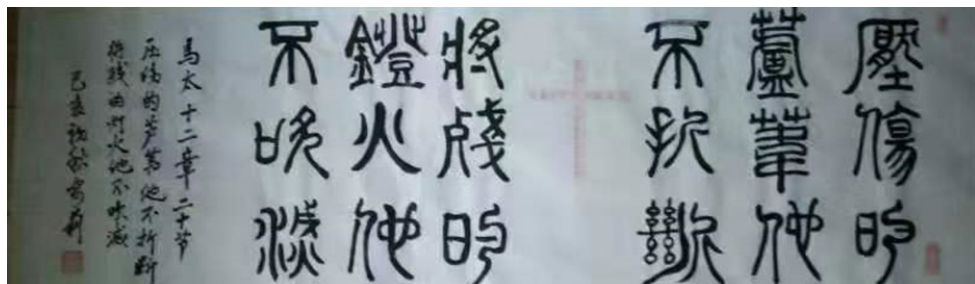 壓傷的
蘆葦他
不折斷
將殘的
鐙火他
不吹滅
馬太十二章二十节
压傷的芦苇他不折断
将残的灯火他不吹滅
己亥